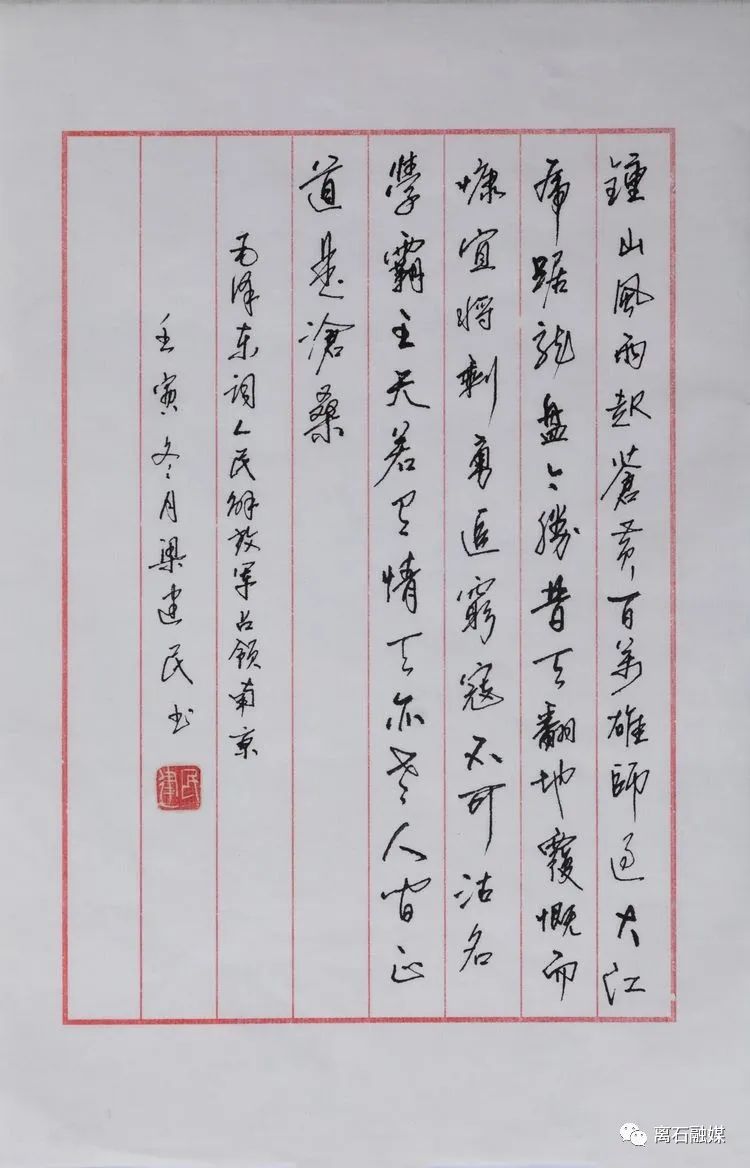 鍾山風雨起蒼黄百萬雄師过大江
虎踞龙盘今勝昔天翻地覆慨而
慷宜将剩勇追窮寇不可沽名
學霸王天若有情天亦老人间正
道是滄桑
毛泽东词人民解放军占领南京
壬寅冬月梁建民书
建民
离石融媒